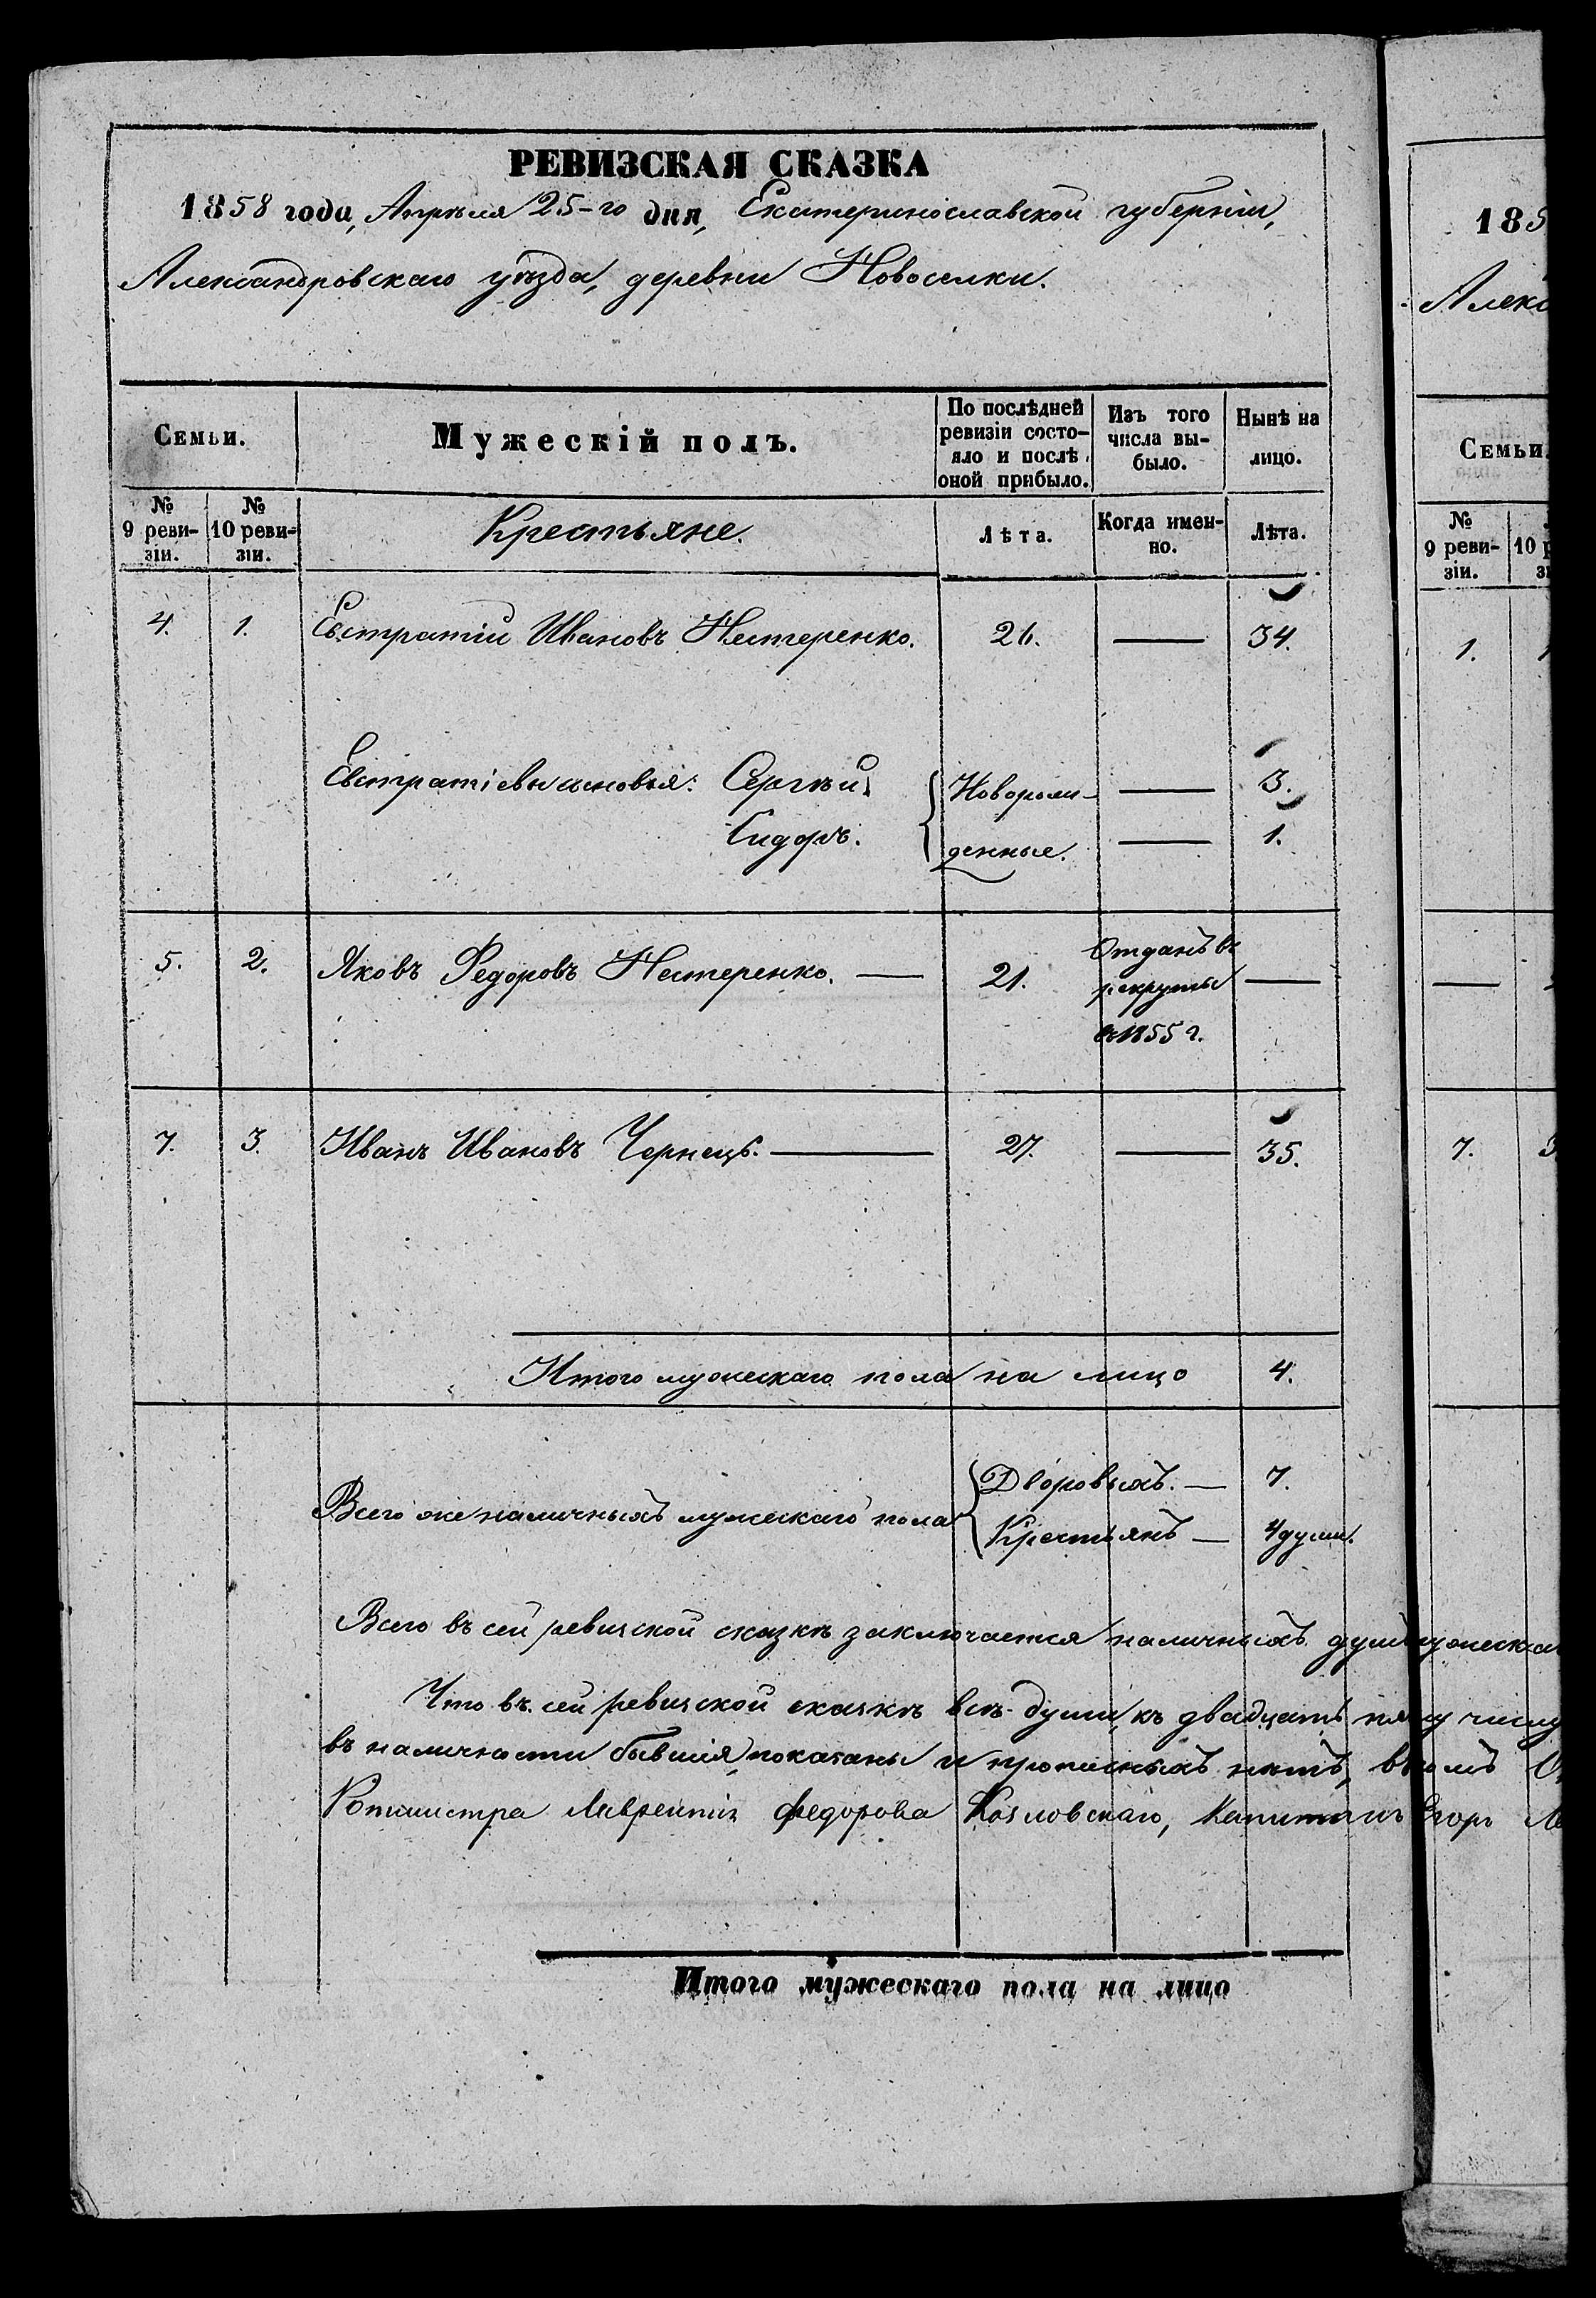 РЕВИЗСКАЯ СКАЗКА
1858 года, Апрѣля 25-го дня, Екатеринославской губерніи,
Александровскаго уѣзда, деревни Новоселки.
Семьи.
Мужескій полъ.
По послѣдней
ревизіи состо-
яло и послѣ
оной прибыло.
Изъ того
числа вы-
было.
Нынѣ на
лицо.
№
9 реви-
зіи.
№
10 реви-
зіи.
Крестьяне.
Лѣта.
Когда имен-
но.
Лѣта.
4. 1. Евстратій Ивановъ Нестеренко. 26. — 34.
Евстратіевы сыновья: Сергѣй. Новорож- — 3.
Сидоръ. денные. — 1.
5. 2. Яковъ Федоровъ Нестеренко. — 21. Отданъ въ
рекруты —
въ 1855 г.
7. 3. Иванъ Ивановъ Чернецъ. — 27. — 35.
Итого мужескаго пола на лицо 4.
Дворовыхъ. — 7.
Всего же наличныхъ мужескаго пола
Крестьянъ — 4 души.
Всего въ сей ревизской сказкѣ заключается наличныхъ душъ мужескаго
Что въ сей ревизской сказкѣ всѣ души, къ двадцать пя му числу
въ наличности бывшія, показаны и прописныхъ нѣтъ, въ томъ
Ротмистра Лаврентія Федорова Козловскаго, Капитанъ Егоръ
Итого мужескаго пола на лицо
185
Алекс
Семьи.
№
9 реви-
зіи.
10 р
зі
1.
—
7. 3